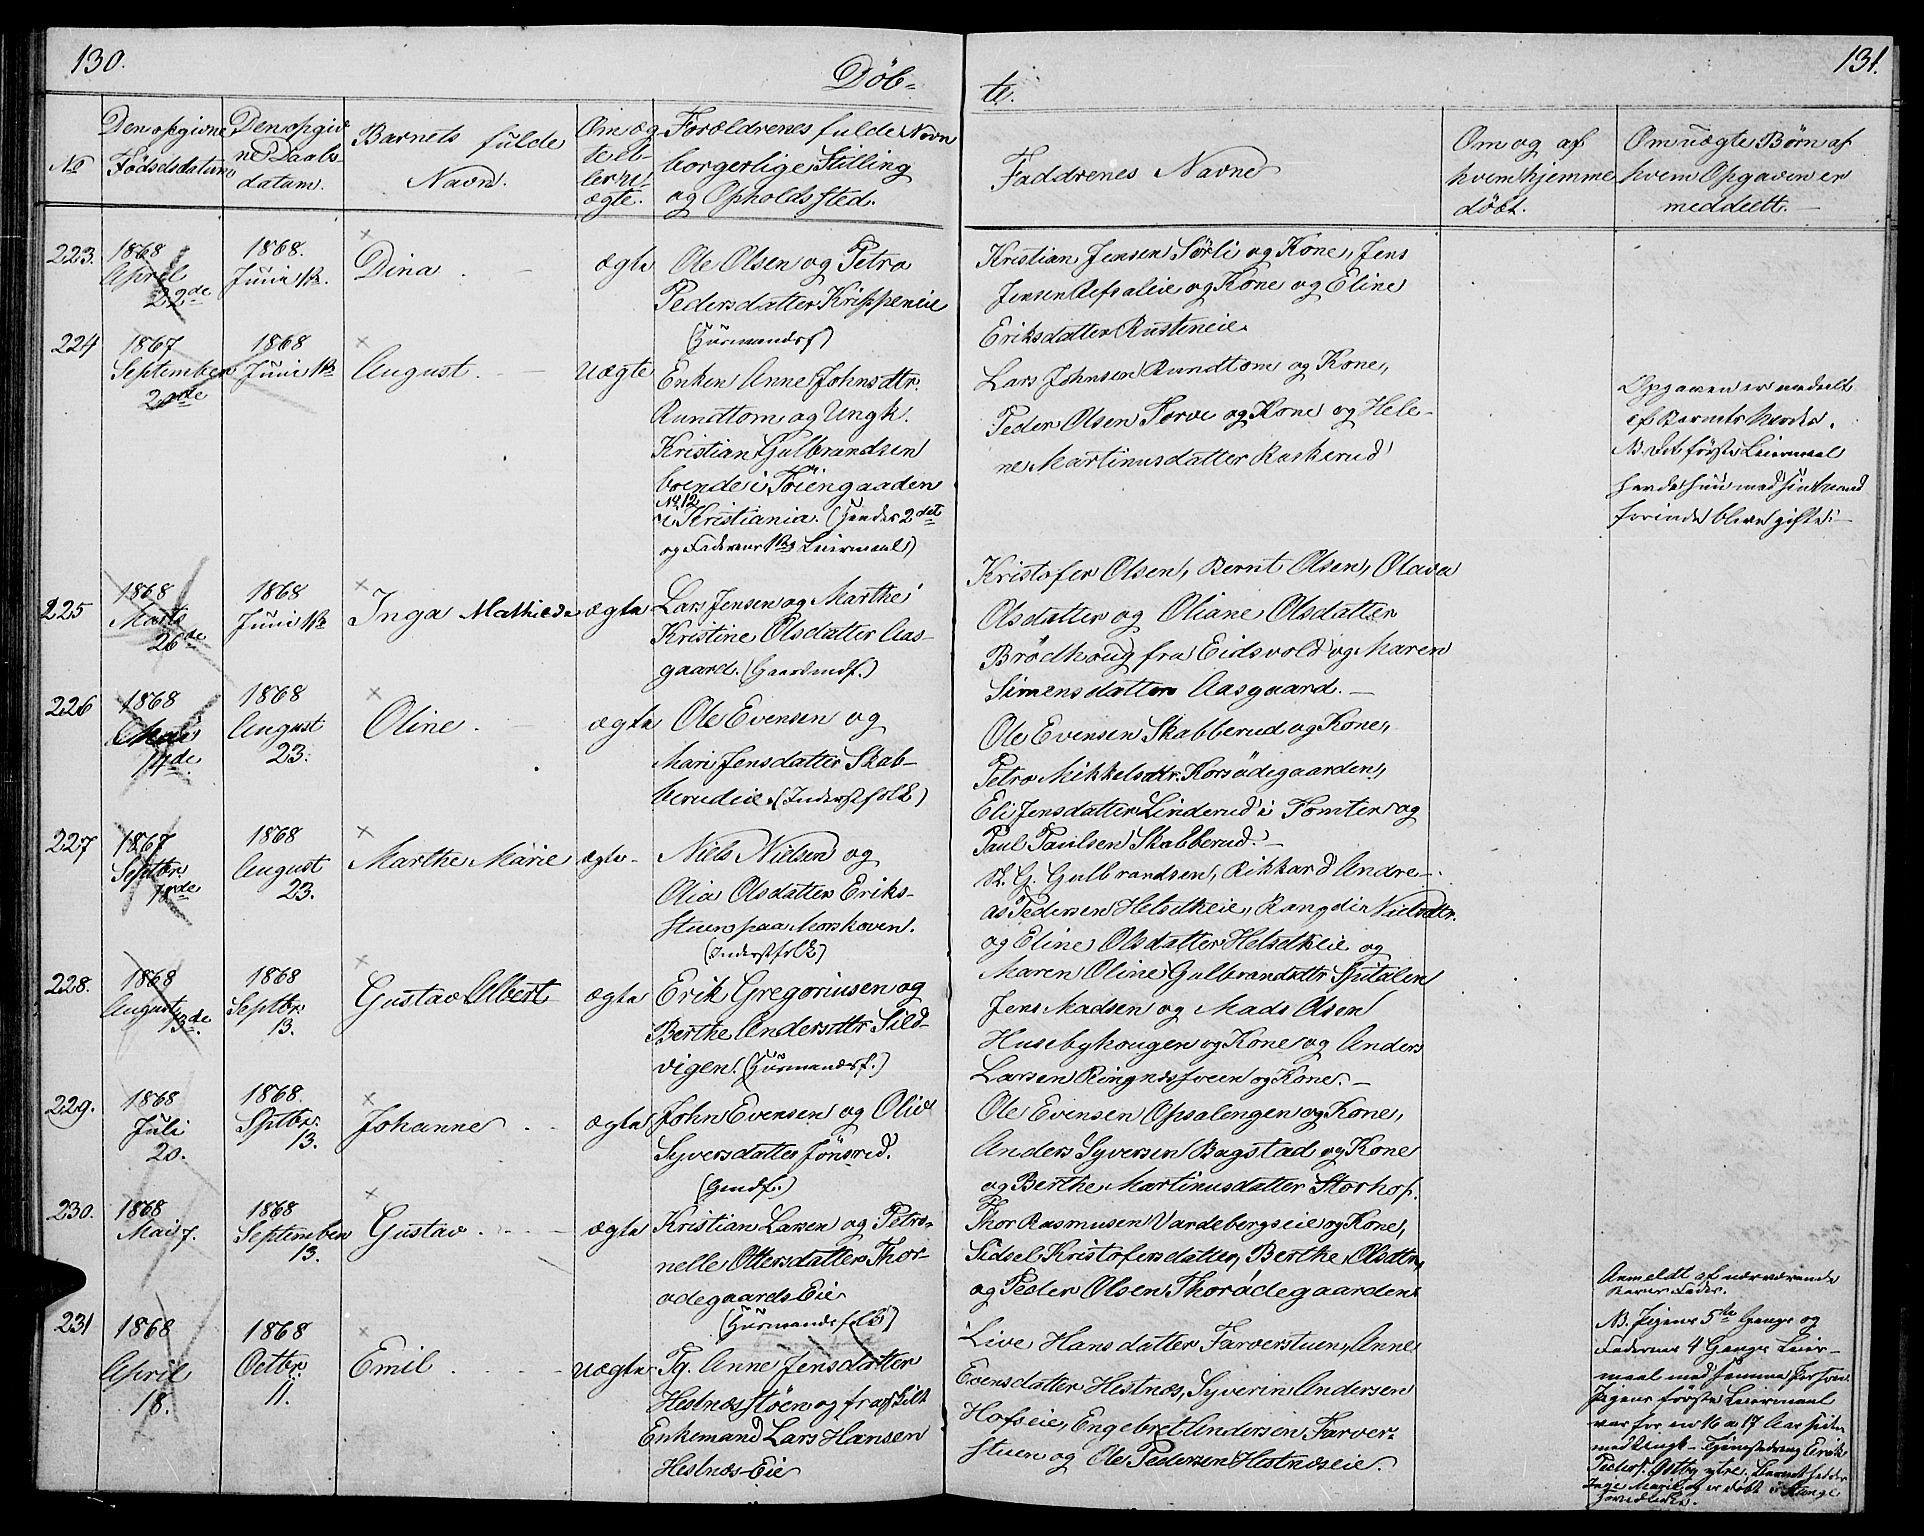 130.
Døb-
te.
131.
No
Den opgivne
Fødselsdatum
Den opgiv
ne Daabs
datum.
Barnets fulde
Navn.
Om æg
te el-
ler u-
ægte.
Forældrenes fulde Navn
borgerlige Stilling
og Opholdssted.
Faddrenes Navne
Om og af
hvem hjemme
døbt.
Om uægte Børn af
hvem Opgaven er
meddeelt.
223.
1868
April
22de
1868.
Juni
Dina
ægte
Ole Olsen og Petra
Pedersdatter Krippeneie
(Huusmandsf)
Kristian Jensen Sørli og Kone, Jens
Jensen Refsaleie og Kone og Eline
Eriksdatter Rusteneie
224
1867
September
20de
1868
Juni
August.
uægte
Enken Anne Johnsdtr.
Rundtom og Ungk.
Kristian Gulbrandsen
boende i Tøiengaaden
No 12
i Kristiania. (Hendes 2det
og Faderens 1ste Leiermaal)
Lars Johnsen Rundtom og Kone,
Peder Olsen Torve og Kone og Hele-
ne Martinusdatter Raskerud
Opgaven er meddelt
af Barnets Moder.
NB. Det første Leiermaal
havde hun med sin Mand
forinden bleve gifte.
225
1868
Marts
26de
1868
Juni
Inga Mathilde
ægte
Lars Jensen og Marthe
Kristine Olsdatter Aas-
gaard. (Gaardmdf.)
Kristofer Olsen, Bernt Olsen, Olava
Olsdatter og Oliane Olsdatter
Brødhoug fra Eidsvold og Maren
Simensdatter Aasgaard.
226
1868
Mai
14de
1868
August
23.
Oline
ægte
Ole Evensen og
Mari Jensdatter Skab-
berudeie. (Inderstfolk)
Ole Evensen Skabberud og Kone,
Petra Mikkelsdtr. Korsødegaarden,
Eli Jensdatter Linderud i Tomter og
Paul Paulsen Skabberud.
227
1867
Septbr
18de
1868
August
23.
Marthe Marie
ægte
Niels Nielsen og
Olia Olsdatter Eriks-
stuen paa Morskoven.
(Inderstfolk)
K. G. Gulbrandsen, Rikkard Andre-
as Pedersen Helsetheie, Rangdi Nielsdtr.
og Eline Olsdatter Helsetheie og
Maren Oline Gulbrandsdtr Spitalen
228.
1868
August
13de
1868
Septbr
13.
Gustav Albert
ægte
Erik Gregoriusen og
Berthe Andersdtr Sild-
vigen. (Huusmandsf.)
Jens Madsen og Mads Olsen
Husebyhougen og Kone og Anders
Larsen Ringnessveen og Kone.
229.
1868
Juli
20.
1868.
Sptbr.
13.
Johanne
ægte
John Evensen og Olia
Syversdatter Jønsrud.
(Gmdf.)
Ole Evensen Opsalengen og Kone,
Anders Syversen Bagstad og Kone
og Berthe Martinusdatter Storhof.
230.
1868
Mai 7.
1868
September
13.
Gustav
ægte
Kristian Larsen og Petro-
nelle Ottersdatter Thor-
ødegaards Eie
(Huusmandsfolk)
Thor Rasmusen Vardebergseie og Kone,
Sidsel Kristofersdatter, Berthe Olsdtr,
og Peder Olsen Thorødegaarden
231
1868
April
18.
1868
Octbr.
11.
Emil
uægte
Pg. Anne Jensdatter
Hestnæsstøen og fraskilt
Enkemand Lars Hansen
Hestnæs-Eie
Live Hansdatter Farverstuen, Anne
Evensdatter Hestnæs, Syverin Andersen
Hofseie, Engebret Andersen Farver-
stuen og Ole Pedersen Hestnæseie.
Anmeldt af nærværende
Barnefader.
NB. Pigens 5te Gange og
Faderens 4 Gange Leier-
maal med samme Person
Pigens første Leiermaal
var for en 16 a 17 Aar siden
med Ungk. Erik
Peders. Østby ytre. Barnet heder
Inge Marie og er døbt i Stange